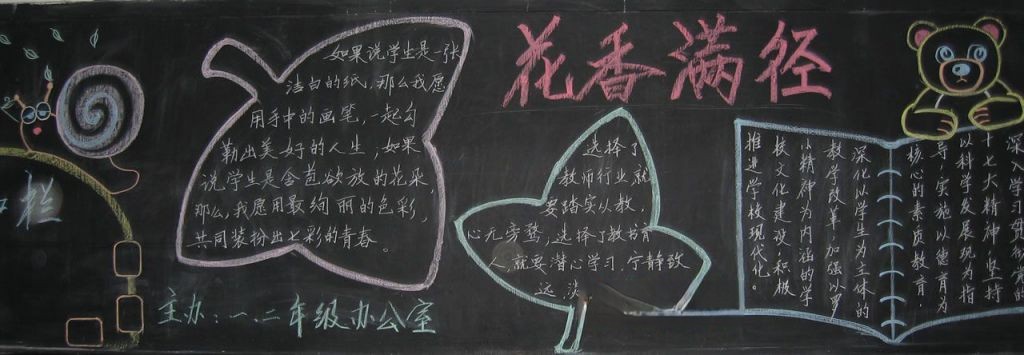 栏
如果说学生是一张
洁白的纸，那么我愿
用手中的画笔，一起勾
勒出美好的人生，如果
说学生是含苞欲放的花朵，
那么，我愿用最绚丽的色彩，
共同装扮出七彩的青春。
主办：一、二年级办公室
花香满径
选择了
教师行业就
要踏实从教，
心无旁骛，选择了教书育
人，就要潜心学习，宁静致
远。
深入学习贯彻党的
十七大精神，坚持
以科学发展观为指
导，实施以德育为
核心的素质教育
深化以学生为主体的
教学改革，加强以
精神为内涵的学
校文化建设，积极
推进学校现代化。